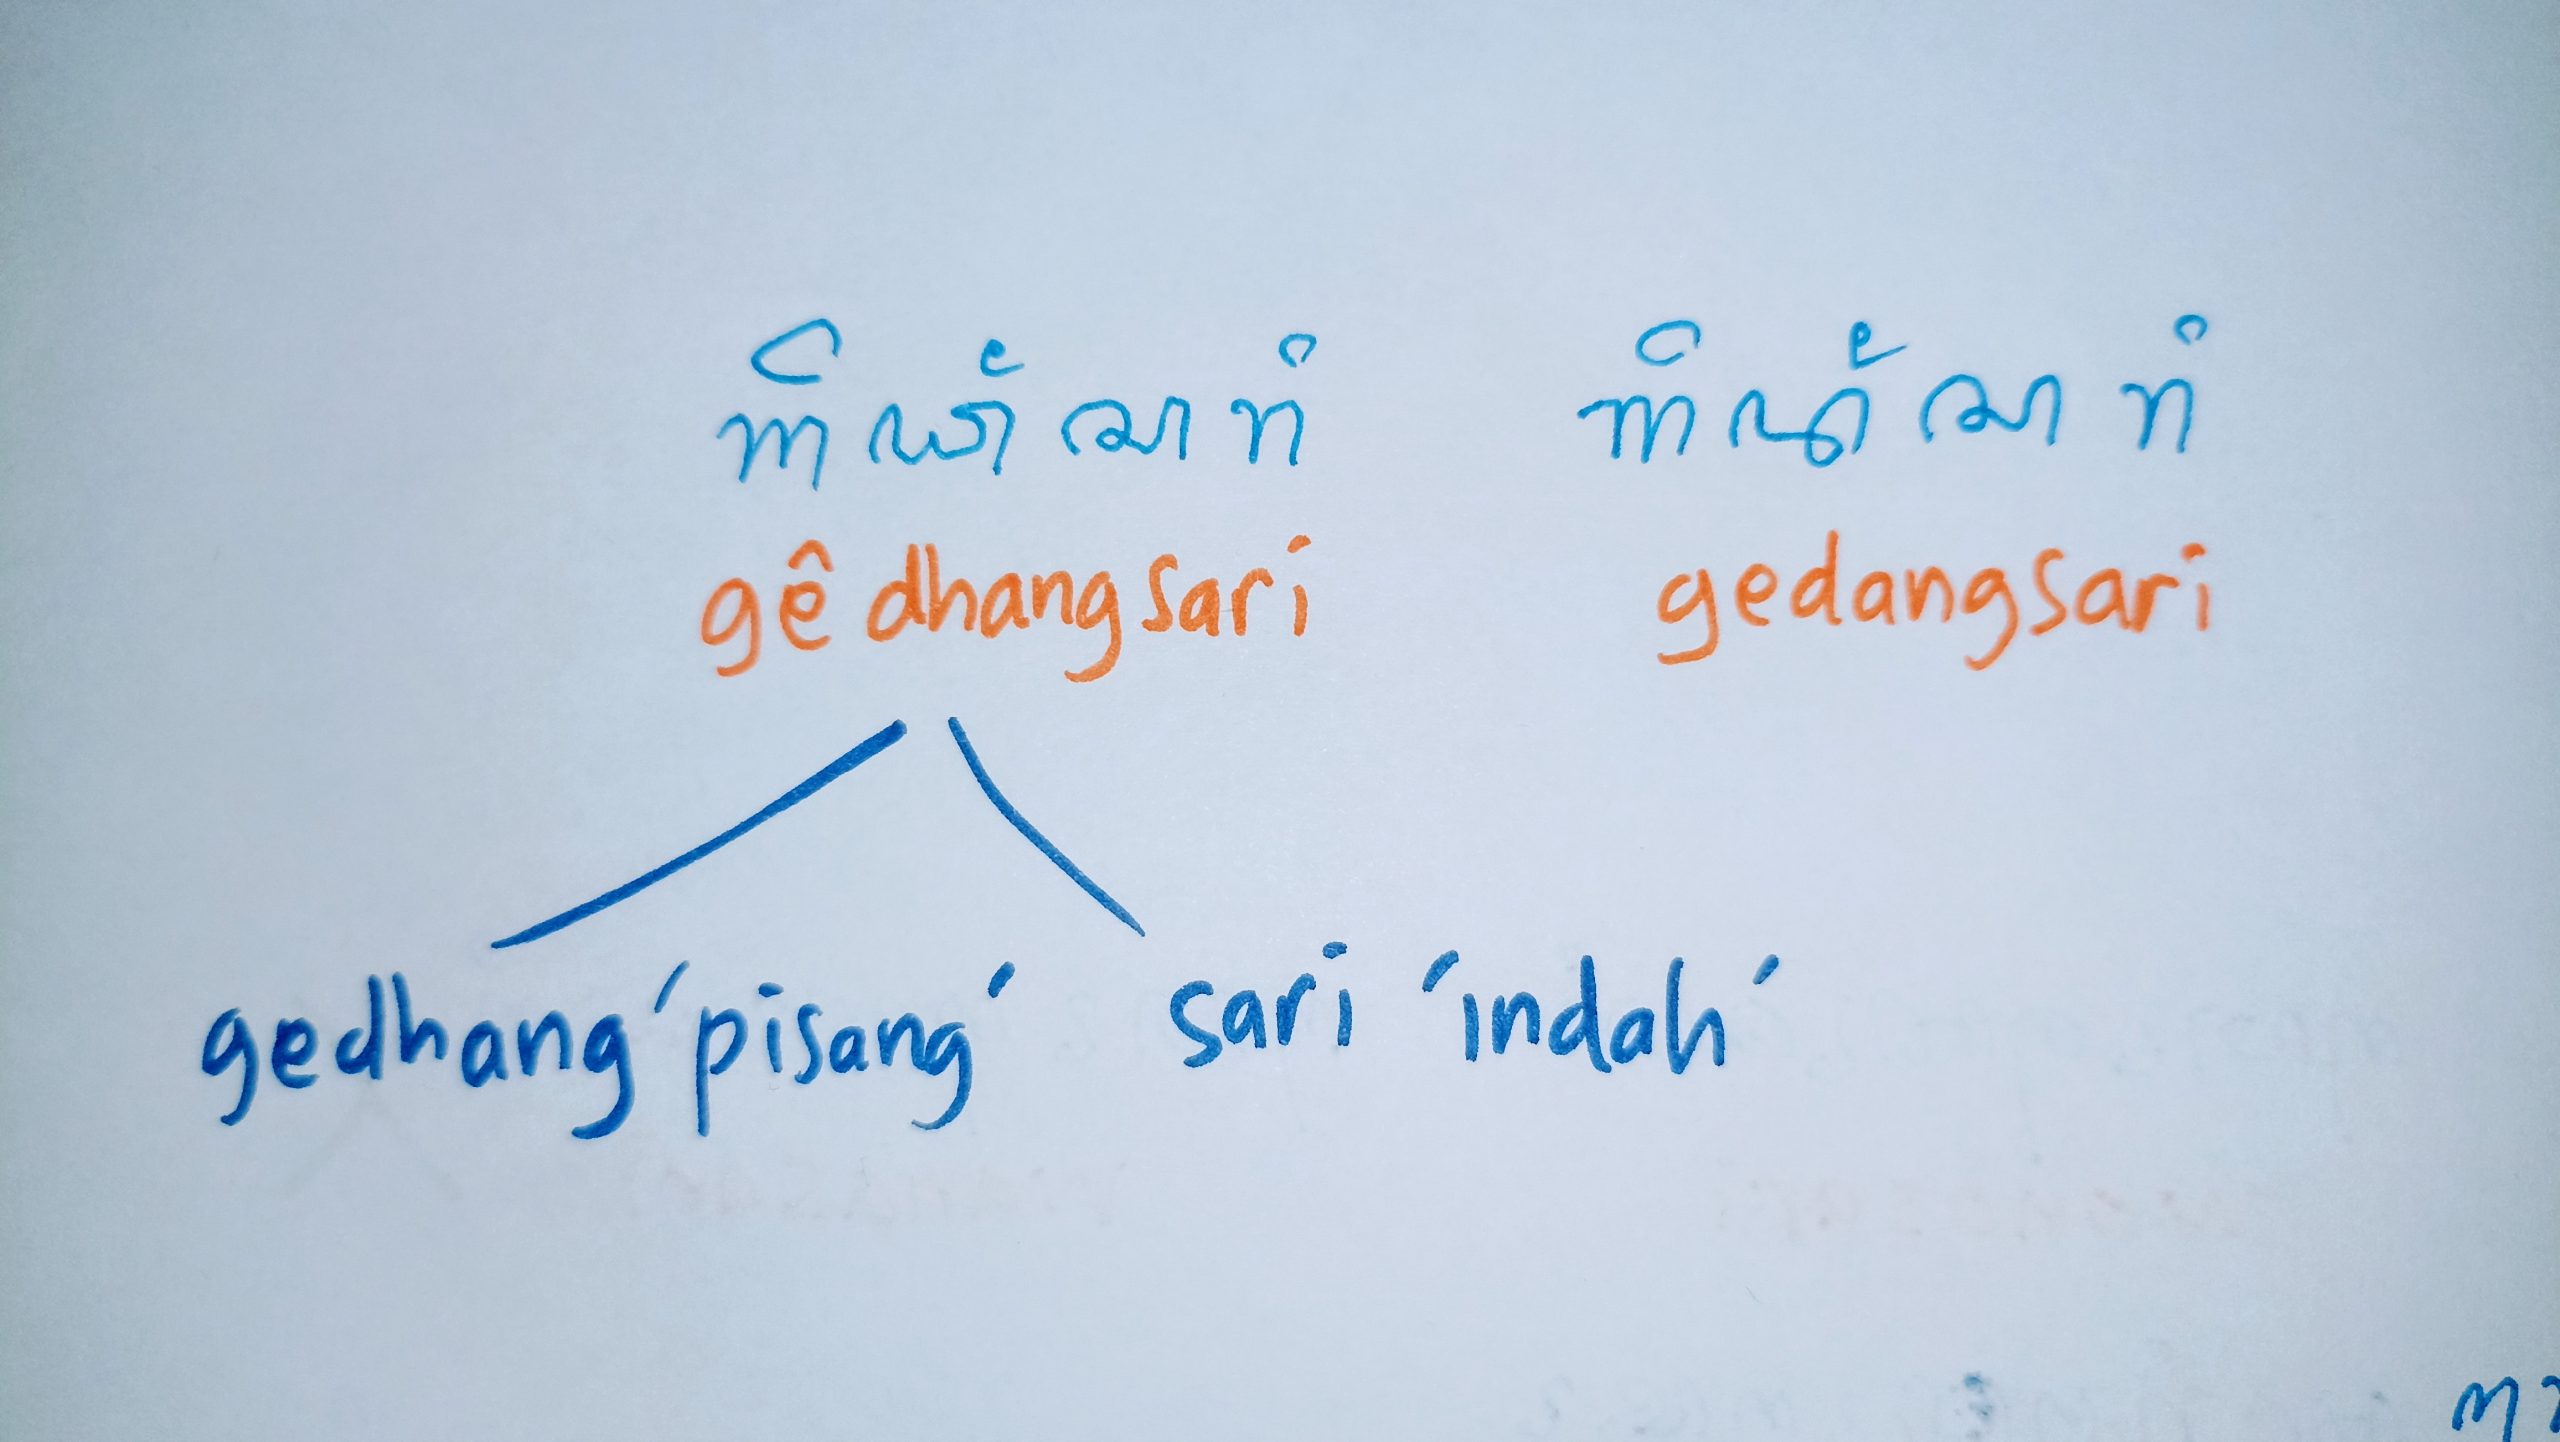 ꦒꦼꦝꦁꦱꦫꦶ ꦒꦼꦢꦁꦱꦫꦶ
gêdhangsari gedangsari
gedhang 'pisang' sari 'indah'